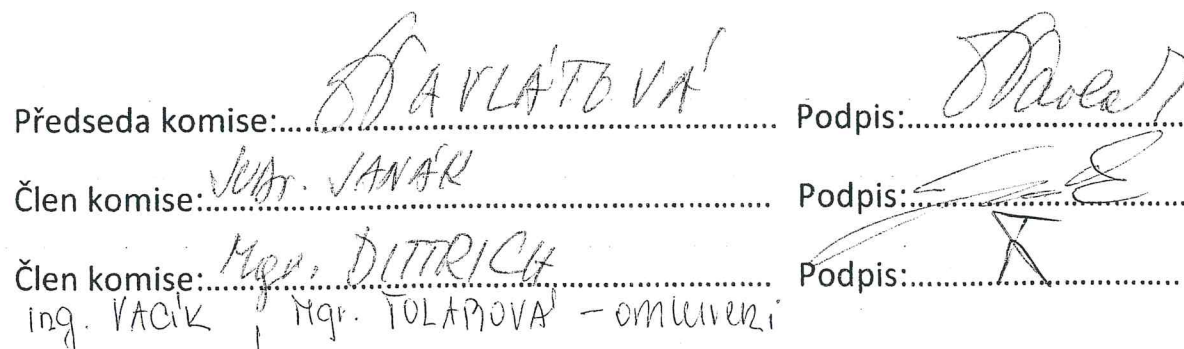 Předseda komise: PAVLÁTOVÁ Podpis:
Člen komise: JUDr. JANÁK Podpis:
Člen komise: Mgr. DITTRICH Podpis:
ing. VACÍK, Mgr. TOLAROVÁ - omluveni